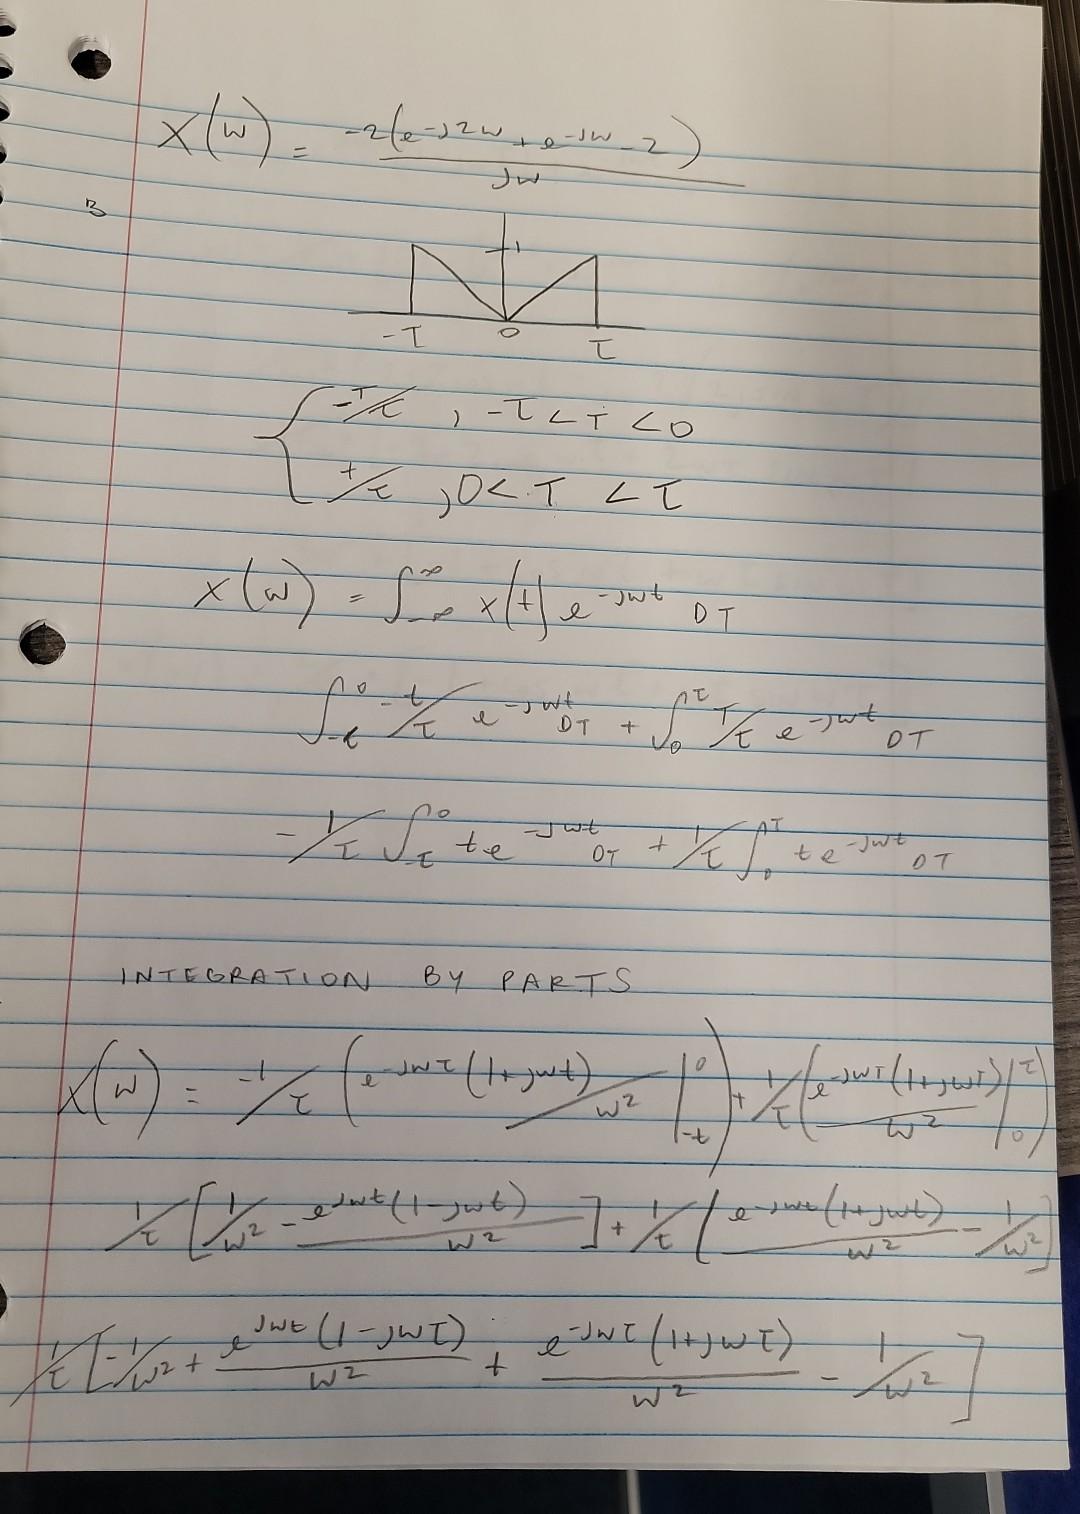 X(w) = -2(e^-j2w + e^-jw - 2) / jw
3
1
-τ 0 τ
{ -T/τ , -τ < T < 0
t/τ , 0 < T < τ
X(w) = ∫_-∞^∞ x(t) e^-jwt DT
∫_-τ^0 -t/τ e^-jwt DT + ∫_0^τ T/τ e^-jwt DT
- 1/τ ∫_τ^0 t e^-jwt DT + 1/τ ∫_0^τ t e^-jwt DT
INTEGRATION BY PARTS
X(w) = -1/τ ( e^-jwτ (1+jwt) / w² |_-t^0 ) + 1/τ ( e^-jwT (1+jwT) / w² |_0^τ )
1/τ [ 1/w² - e^jwt (1-jwt) / w² ] + 1/τ [ e^-jwt (1+jwt) / w² - 1/w² ]
1/τ [ -1/w² + e^jwt (1-jwτ) / w² + e^-jwτ (1+jwτ) / w² - 1/w² ]